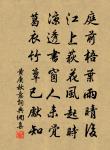 庭前梧葉雨晴後
江上荻花風起時
涼透書窗人未覺
葛衣竹簟已知
黄庚秋意詞典網集